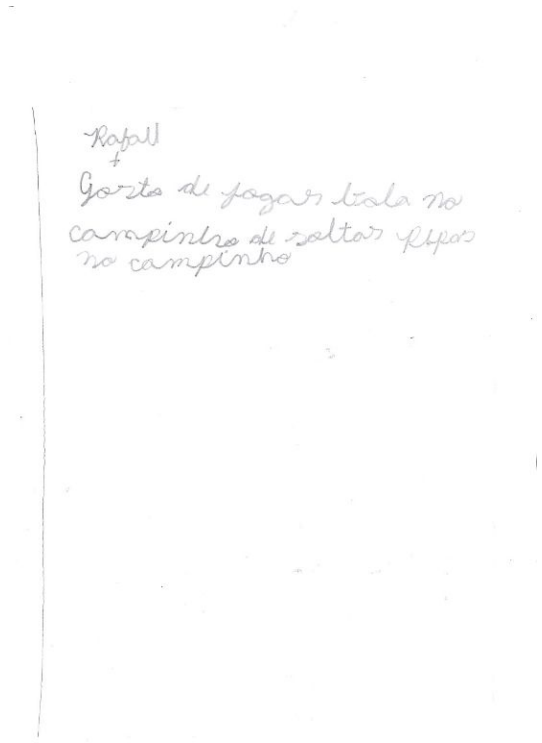 Rafall
+
Gosto de jogar bola no
campinho de soltar pipas
no campinho